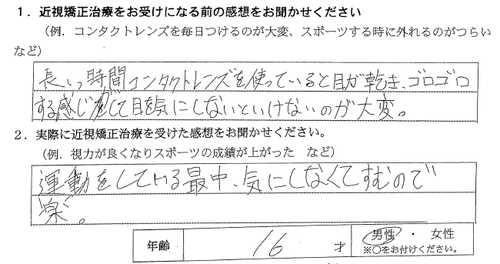 1．近視矯正治療をお受けになる前の感想をお聞かせください
（例．コンタクトレンズを毎日つけるのが大変、スポーツする時に外れるのがつらい
など）
長い時間コンタクトレンズを使っていると目が乾き、ゴロゴロ
する感じがして目を気にしないといけないのが大変。
2．実際に近視矯正治療を受けた感想をお聞かせください。
（例．視力が良くなりスポーツの成績が上がった　など）
運動をしている最中、気にしなくてすむので
楽。
年齢　16　才　男性・女性
※○をお付けください。